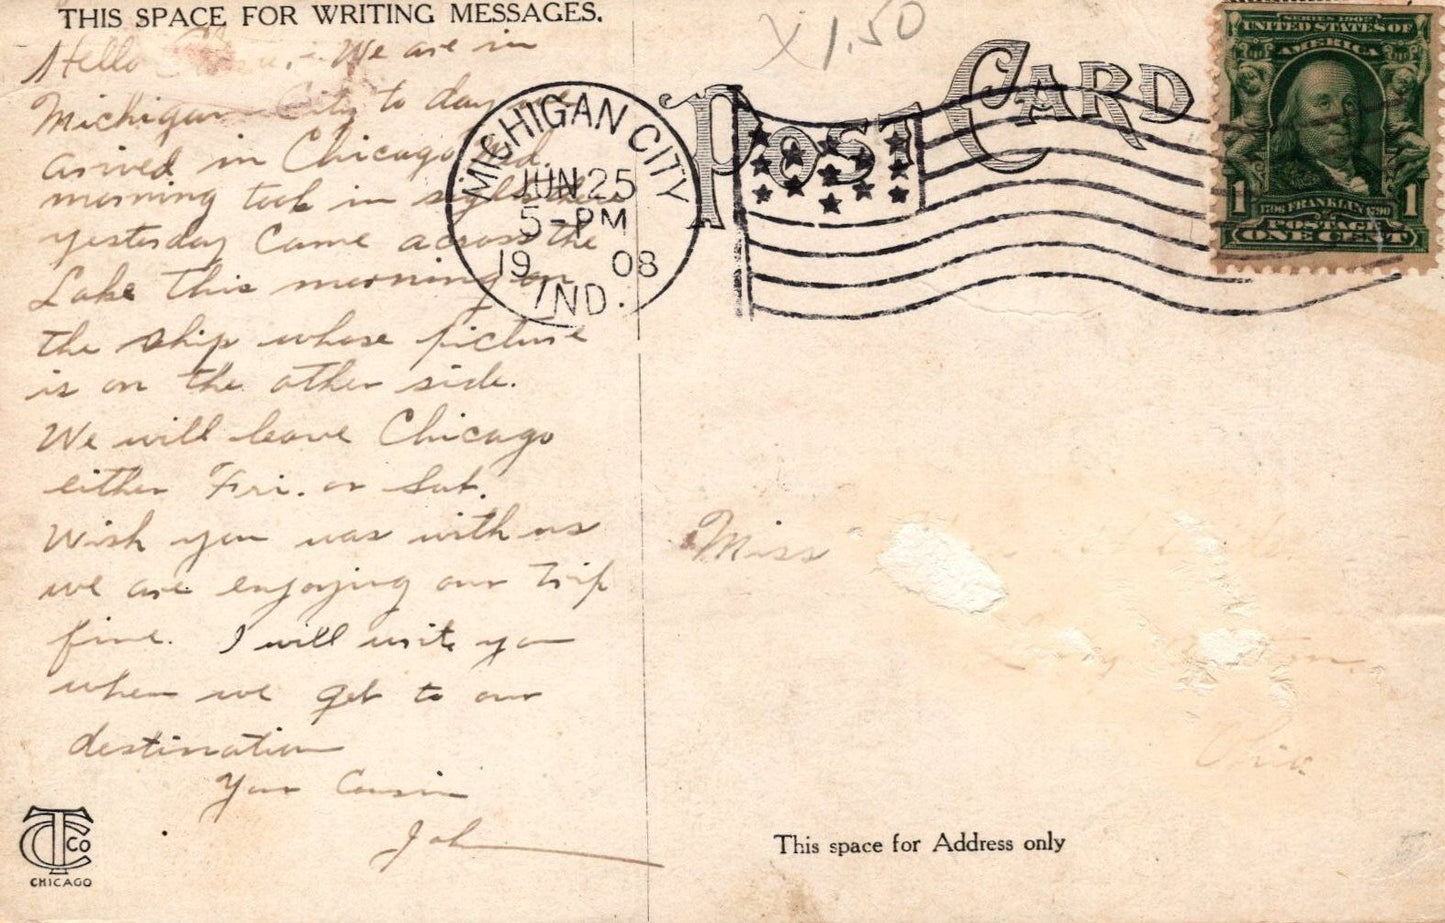 THIS SPACE FOR WRITING MESSAGES.
X 1.50
POST CARD
SERIES 1902
UNITED STATES OF
AMERICA
1 1
1706 FRANKLIN 1790
POSTAGE
ONE CENT
MICHIGAN CITY
JUN 25
5-PM
19 08
IND.
Hello We are in
Michigan City to day we
arived in Chicago Wed.
morning took in sights there
yesterday Came across the
Lake this morning on
the ship whose picture
is on the other side.
We will leave Chicago
either Fri. or Sat.
Wish you was with us
we are enjoying our trip
fine. I will write you
when we get to our
destination
Your Cousin
John
Miss
Ohio.
TC CO
CHICAGO
This space for Address only